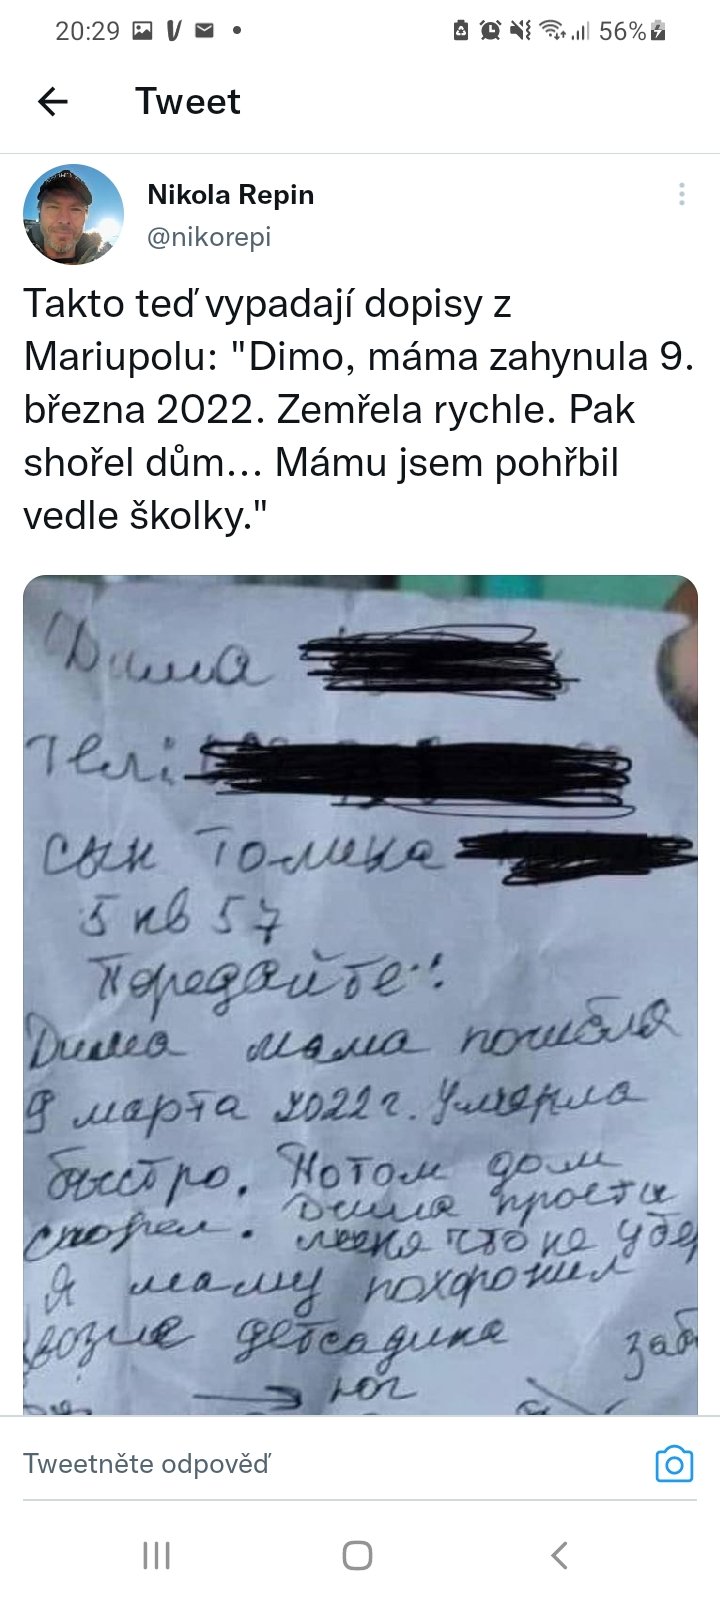 20:29
56%
Tweet
Nikola Repin
@nikorepi
Takto teď vypadají dopisy z
Mariupolu: "Dimo, máma zahynula 9.
března 2022. Zemřela rychle. Pak
shořel dům... Mámu jsem pohřbil
vedle školky."
Дима
Тел:
сын Толика
5 кв 57
Передайте!
Дима мама погибла
9 марта 2022 г. Умерла
быстро. Потом дом
сгорел. Дима прости
меня что не убе
Я маму похоронил
возле детсадика
заб
→ юг
Tweetněte odpověď